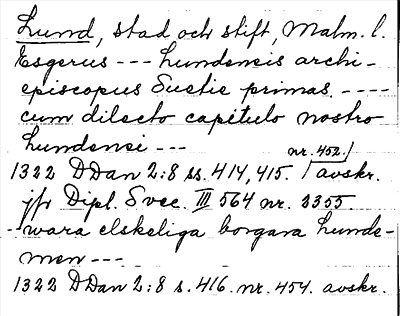 Lund, stad och stift, Malm. l.
Esgerus --- Lundensis archi-
episcopus Suetie primas. ----
cum dilecto capitulo nostro
Lundensi ---
nr. 452.
1322 DDan 2:8 ss. 414, 415. / avskr.
jfr Dipl. Svec. III 564 nr. 2355.
--wara elskeliga borgara Lunde-
men ---
1322 DDan 2:8 s. 416. nr. 454. avskr.